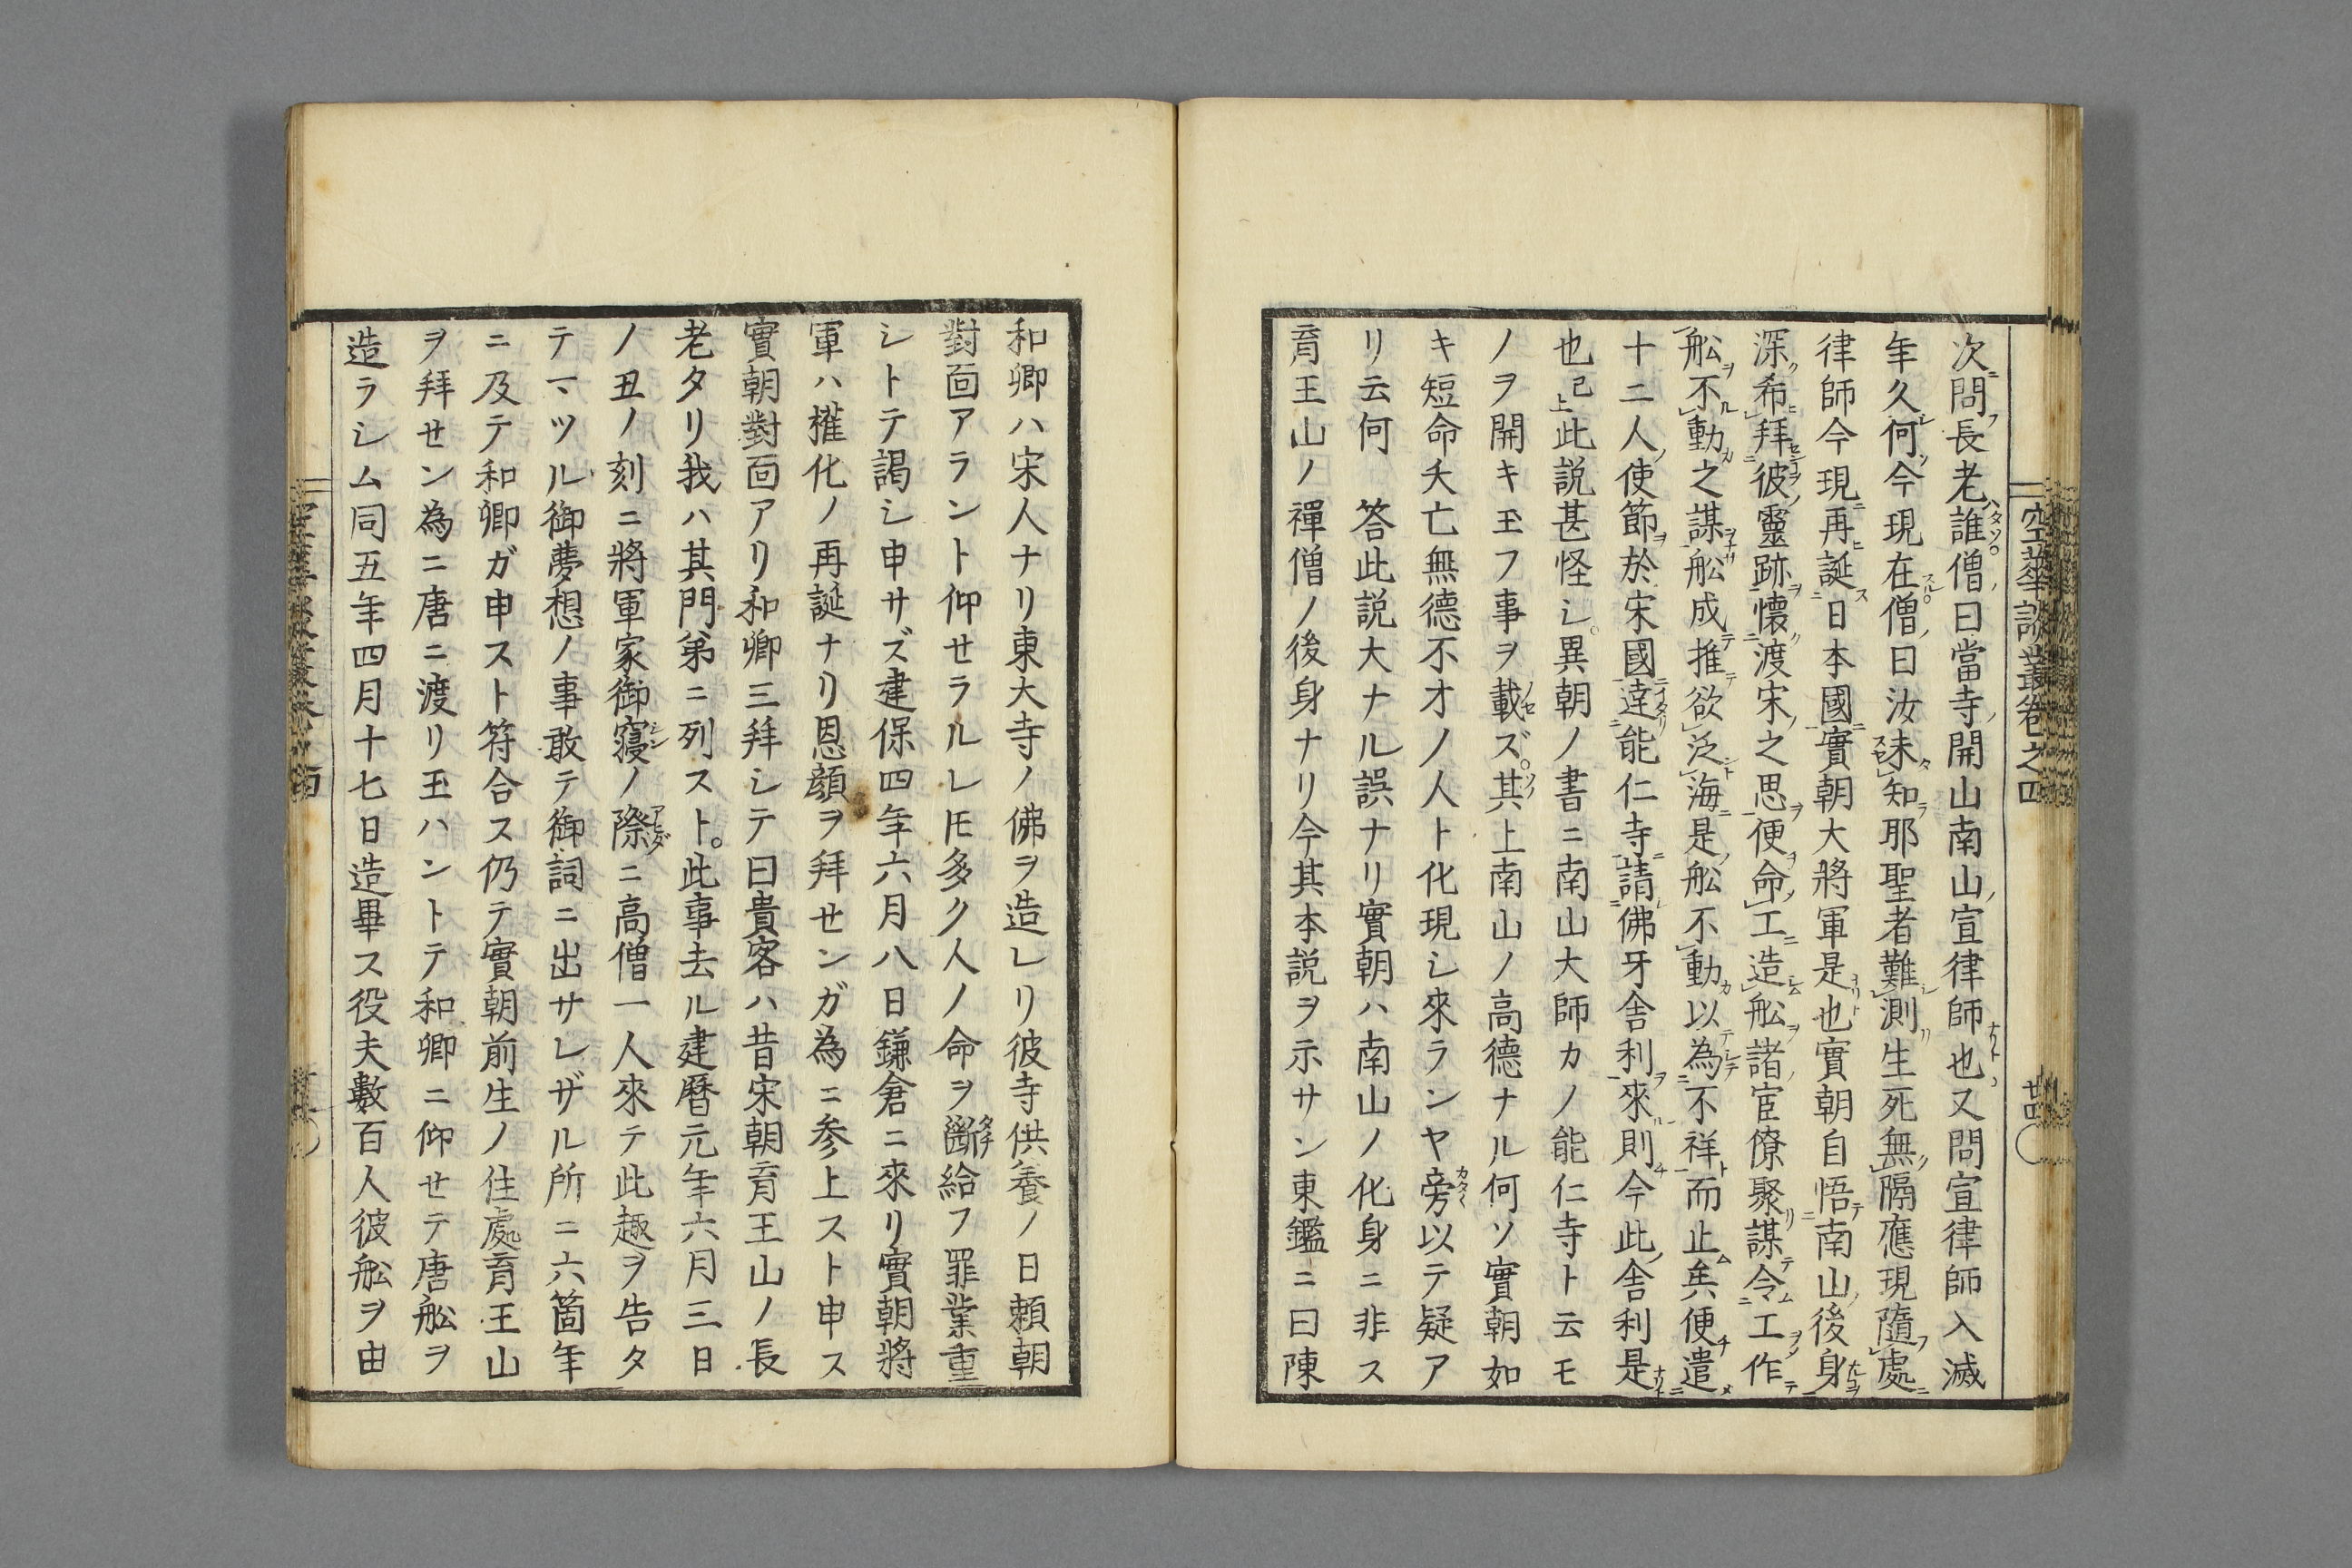 空華談叢卷之四
廿四
次問長老誰僧曰當寺開山南山宣律師也又問宣律師入滅
年久何今現在僧曰汝未知耶聖者難測生死無隔應現隨處
律師今現再誕日本國實朝大將軍是也實朝自悟南山後身
深希拜彼靈跡懷渡宋之思便命工造舩諸宦僚聚謀令工作
舩不動之謀舩成推欲泛海是舩不動以為不祥而止矣便遣
十二人使節於宋國達能仁寺請佛牙舎利來則今此舎利是
也已上此説甚怪シ異朝ノ書ニ南山大師カノ能仁寺ト云モ
ノヲ開キ玉フ事ヲ載ズ其上南山ノ高德ナル何ソ實朝如
キ短命夭亡無德不才ノ人ト化現シ來ランヤ旁以テ疑ア
リ云何　答此説大ナル誤ナリ實朝ハ南山ノ化身ニ非ス
育王山ノ禪僧ノ後身ナリ今其本説ヲ示サン東鑑ニ曰陳
和卿ハ宋人ナリ東大寺ノ佛ヲ造レリ彼寺供養ノ日頼朝
對面アラント仰セラルレ𪜈多ク人ノ命ヲ斷給フ罪業重
シトテ謁シ申サズ建保四年六月八日鎌倉ニ來リ實朝將
軍ハ權化ノ再誕ナリ恩顔ヲ拜センガ為ニ参上スト申ス
實朝對面アリ和卿三拜シテ曰貴客ハ昔宋朝育王山ノ長
老タリ我ハ其門弟ニ列スト此事去ル建曆元年六月三日
ノ丑ノ刻ニ將軍家御寢ノ際ニ高僧一人來テ此趣ヲ告タ
テマツル御夢想ノ事敢テ御詞ニ出サレザル所ニ六箇年
ニ及テ和卿ガ申スト符合ス仍テ實朝前生ノ住處育王山
ヲ拜セン為ニ唐ニ渡リ玉ハントテ和卿ニ仰セテ唐舩ヲ
造ラシム同五年四月十七日造畢ス役夫數百人彼舩ヲ由